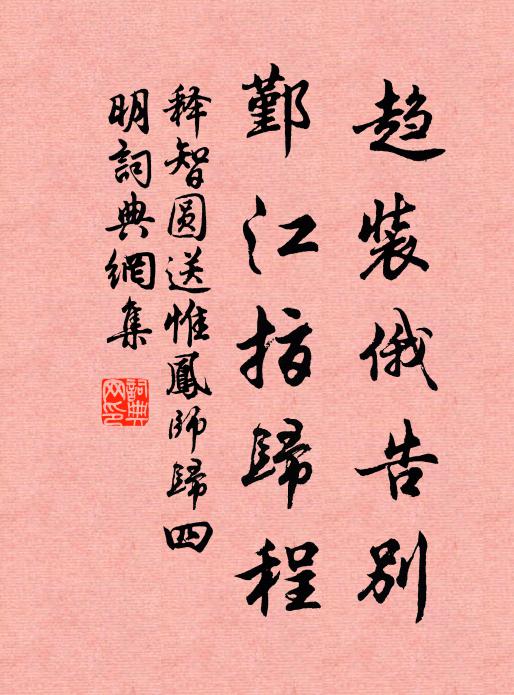 趋装俄告别
鄞江指歸程
释智圆送惟鳳师歸四
明詞典網集
詞典
网印